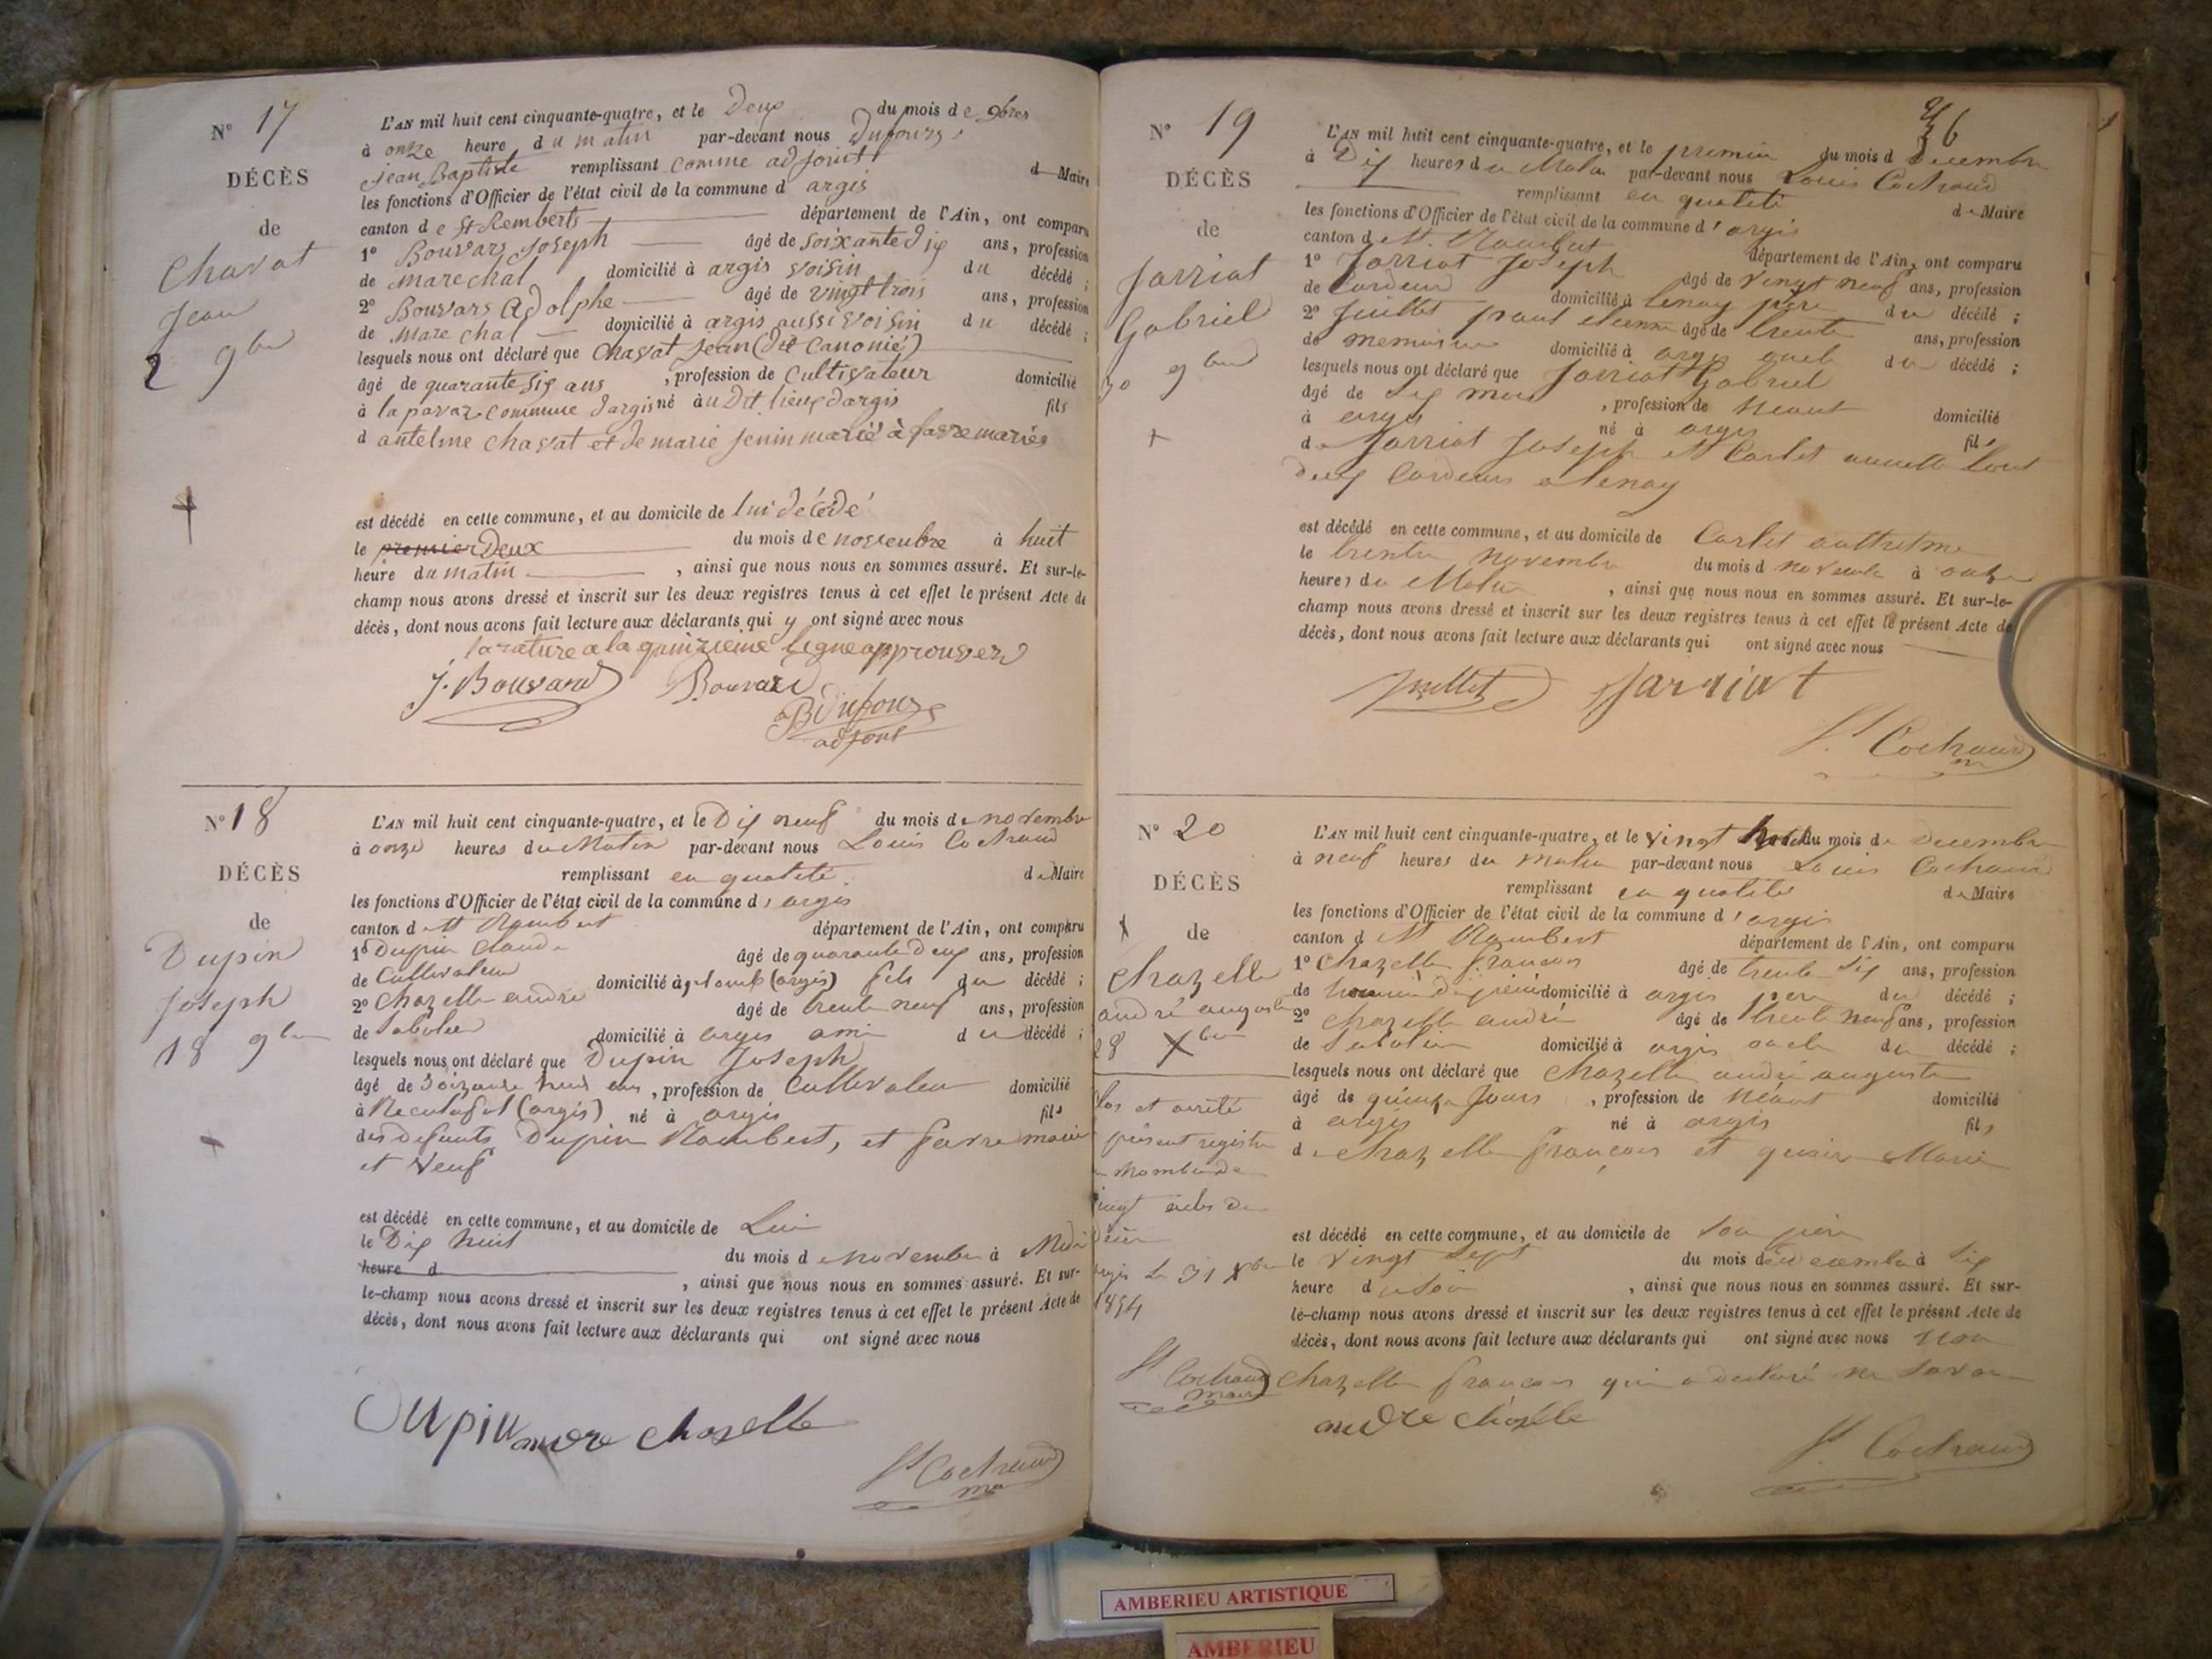 N° 17
DÉCÈS
de
Chavat
Jean
2 9bre
L'AN mil huit cent cinquante-quatre, et le Deux du mois de 9bres
à onze heure du matin par-devant nous Dufours
Jean Baptiste remplissant comme adjoint d Maire
les fonctions d'Officier de l'état civil de la commune d argis
canton de St Remberts département de l'Ain, ont comparu
1° Bouvars Joseph âgé de soixante dix ans, profession
de marechal domicilié à argis voisin du décédé ;
2° Bouvars Adolphe âgé de vingt trois ans, profession
de marechal domicilié à argis aussi voisin du décédé ;
lesquels nous ont déclaré que Chavat Jean (dit Canonié)
âgé de quarante six ans , profession de Cultivateur domicilié
à la pavaz commune dargis né au Dit lieux dargis fils
d antelme Chavat et de marie Jenin marié à favre mariés
est décédé en cette commune, et au domicile de lui décédé
le premier Deux du mois de novembre à huit
heure du matin , ainsi que nous nous en sommes assuré. Et sur-le-
champ nous avons dressé et inscrit sur les deux registres tenus à cet effet le présent Acte de
décès, dont nous avons fait lecture aux déclarants qui y ont signé avec nous
la rature a la quinzieme ligne approuver
J. Bouvard Bouvard
JB Dufours
adjoint
N° 18
DÉCÈS
de
Dupin
Joseph
18 9bre
L'AN mil huit cent cinquante-quatre, et le Dix neuf du mois de novembre
à onze heures du Matin par-devant nous Louis Cochraud
remplissant en qualité de Maire
les fonctions d'Officier de l'état civil de la commune d'argis
canton de St Rambert département de l'Ain, ont comparu
1° Dupin Claude âgé de quarante deux ans, profession
de Cultivateur domicilié à (argis) fils du décédé ;
2° Chazelle andré âgé de trente neuf ans, profession
de Sabotier domicilié à argis ami du décédé ;
lesquels nous ont déclaré que Dupin Joseph
âgé de soixante huit ans , profession de Cultivateur domicilié
à Reculafol (argis) né à argis fils
des defunts Dupin Rambert, et favre marie
et Veuf
est décédé en cette commune, et au domicile de Lui
le Dix huit du mois de novembre à Midi
heure d , ainsi que nous nous en sommes assuré. Et sur-
le-champ nous avons dressé et inscrit sur les deux registres tenus à cet effet le présent Acte de
décès, dont nous avons fait lecture aux déclarants qui ont signé avec nous
Dupin andre chazelle
Ls Cochraud
N° 19
DÉCÈS
de
Jarriat
Gabriel
30 9bre
L'AN mil huit cent cinquante-quatre, et le premier du mois d Decembre
à Dix heures du Matin par-devant nous Louis Cochraud
remplissant en qualité de Maire
les fonctions d'Officier de l'état civil de la commune d'argis
canton de St. Rambert département de l'Ain, ont comparu
1° Jarriat Joseph âgé de vingt neuf ans, profession
de Cardeur domicilié à tenay père du décédé ;
2° Juillet âgé de trente ans, profession
de menuisier domicilié à argis oncle du décédé ;
lesquels nous ont déclaré que Jarriat Gabriel
âgé de Six mois , profession de Neant domicilié
à argis né à argis fils
de Jarriat Joseph et Carlet tout
deux Cardeurs a tenay
est décédé en cette commune, et au domicile de Carlet
le trente novembre du mois d novembre à onze
heures du Matin , ainsi que nous nous en sommes assuré. Et sur-le-
champ nous avons dressé et inscrit sur les deux registres tenus à cet effet le présent Acte de
décès, dont nous avons fait lecture aux déclarants qui ont signé avec nous
Juillet Jarriat
Ls Cochraud
N° 20
DÉCÈS
de
Chazelle
andré auguste
28 Xbre
Clos et arrêté
présent registre
au nombre de
vingt actes de
Décès
argis Le 31 Xbre
1854
Ls Cochraud
maire
L'AN mil huit cent cinquante-quatre, et le vingt huit du mois de Decembre
à neuf heures du matin par-devant nous Louis Cochraud
remplissant en qualité de Maire
les fonctions d'Officier de l'état civil de la commune d'argis
canton d St Rambert département de l'Ain, ont comparu
1° Chazelle françois âgé de trente six ans, profession
de domicilié à argis pere du décédé ;
2° Chazelle andré âgé de trente neuf ans, profession
de Sabotier domicilié à argis oncle du décédé ;
lesquels nous ont déclaré que Chazelle andré auguste
âgé de quinze Jours , profession de Néant domicilié
à argis né à argis fils
de Chazelle françois et Marie
est décédé en cette commune, et au domicile de son père
le vingt sept du mois de decembre à six
heure du Soir , ainsi que nous nous en sommes assuré. Et sur-
le-champ nous avons dressé et inscrit sur les deux registres tenus à cet effet le présent Acte de
décès, dont nous avons fait lecture aux déclarants qui ont signé avec nous non
Chazelle francois qui a declaré ne savoir
andre chazelle
Ls Cochraud
AMBERIEU ARTISTIQUE
AMBERIEU